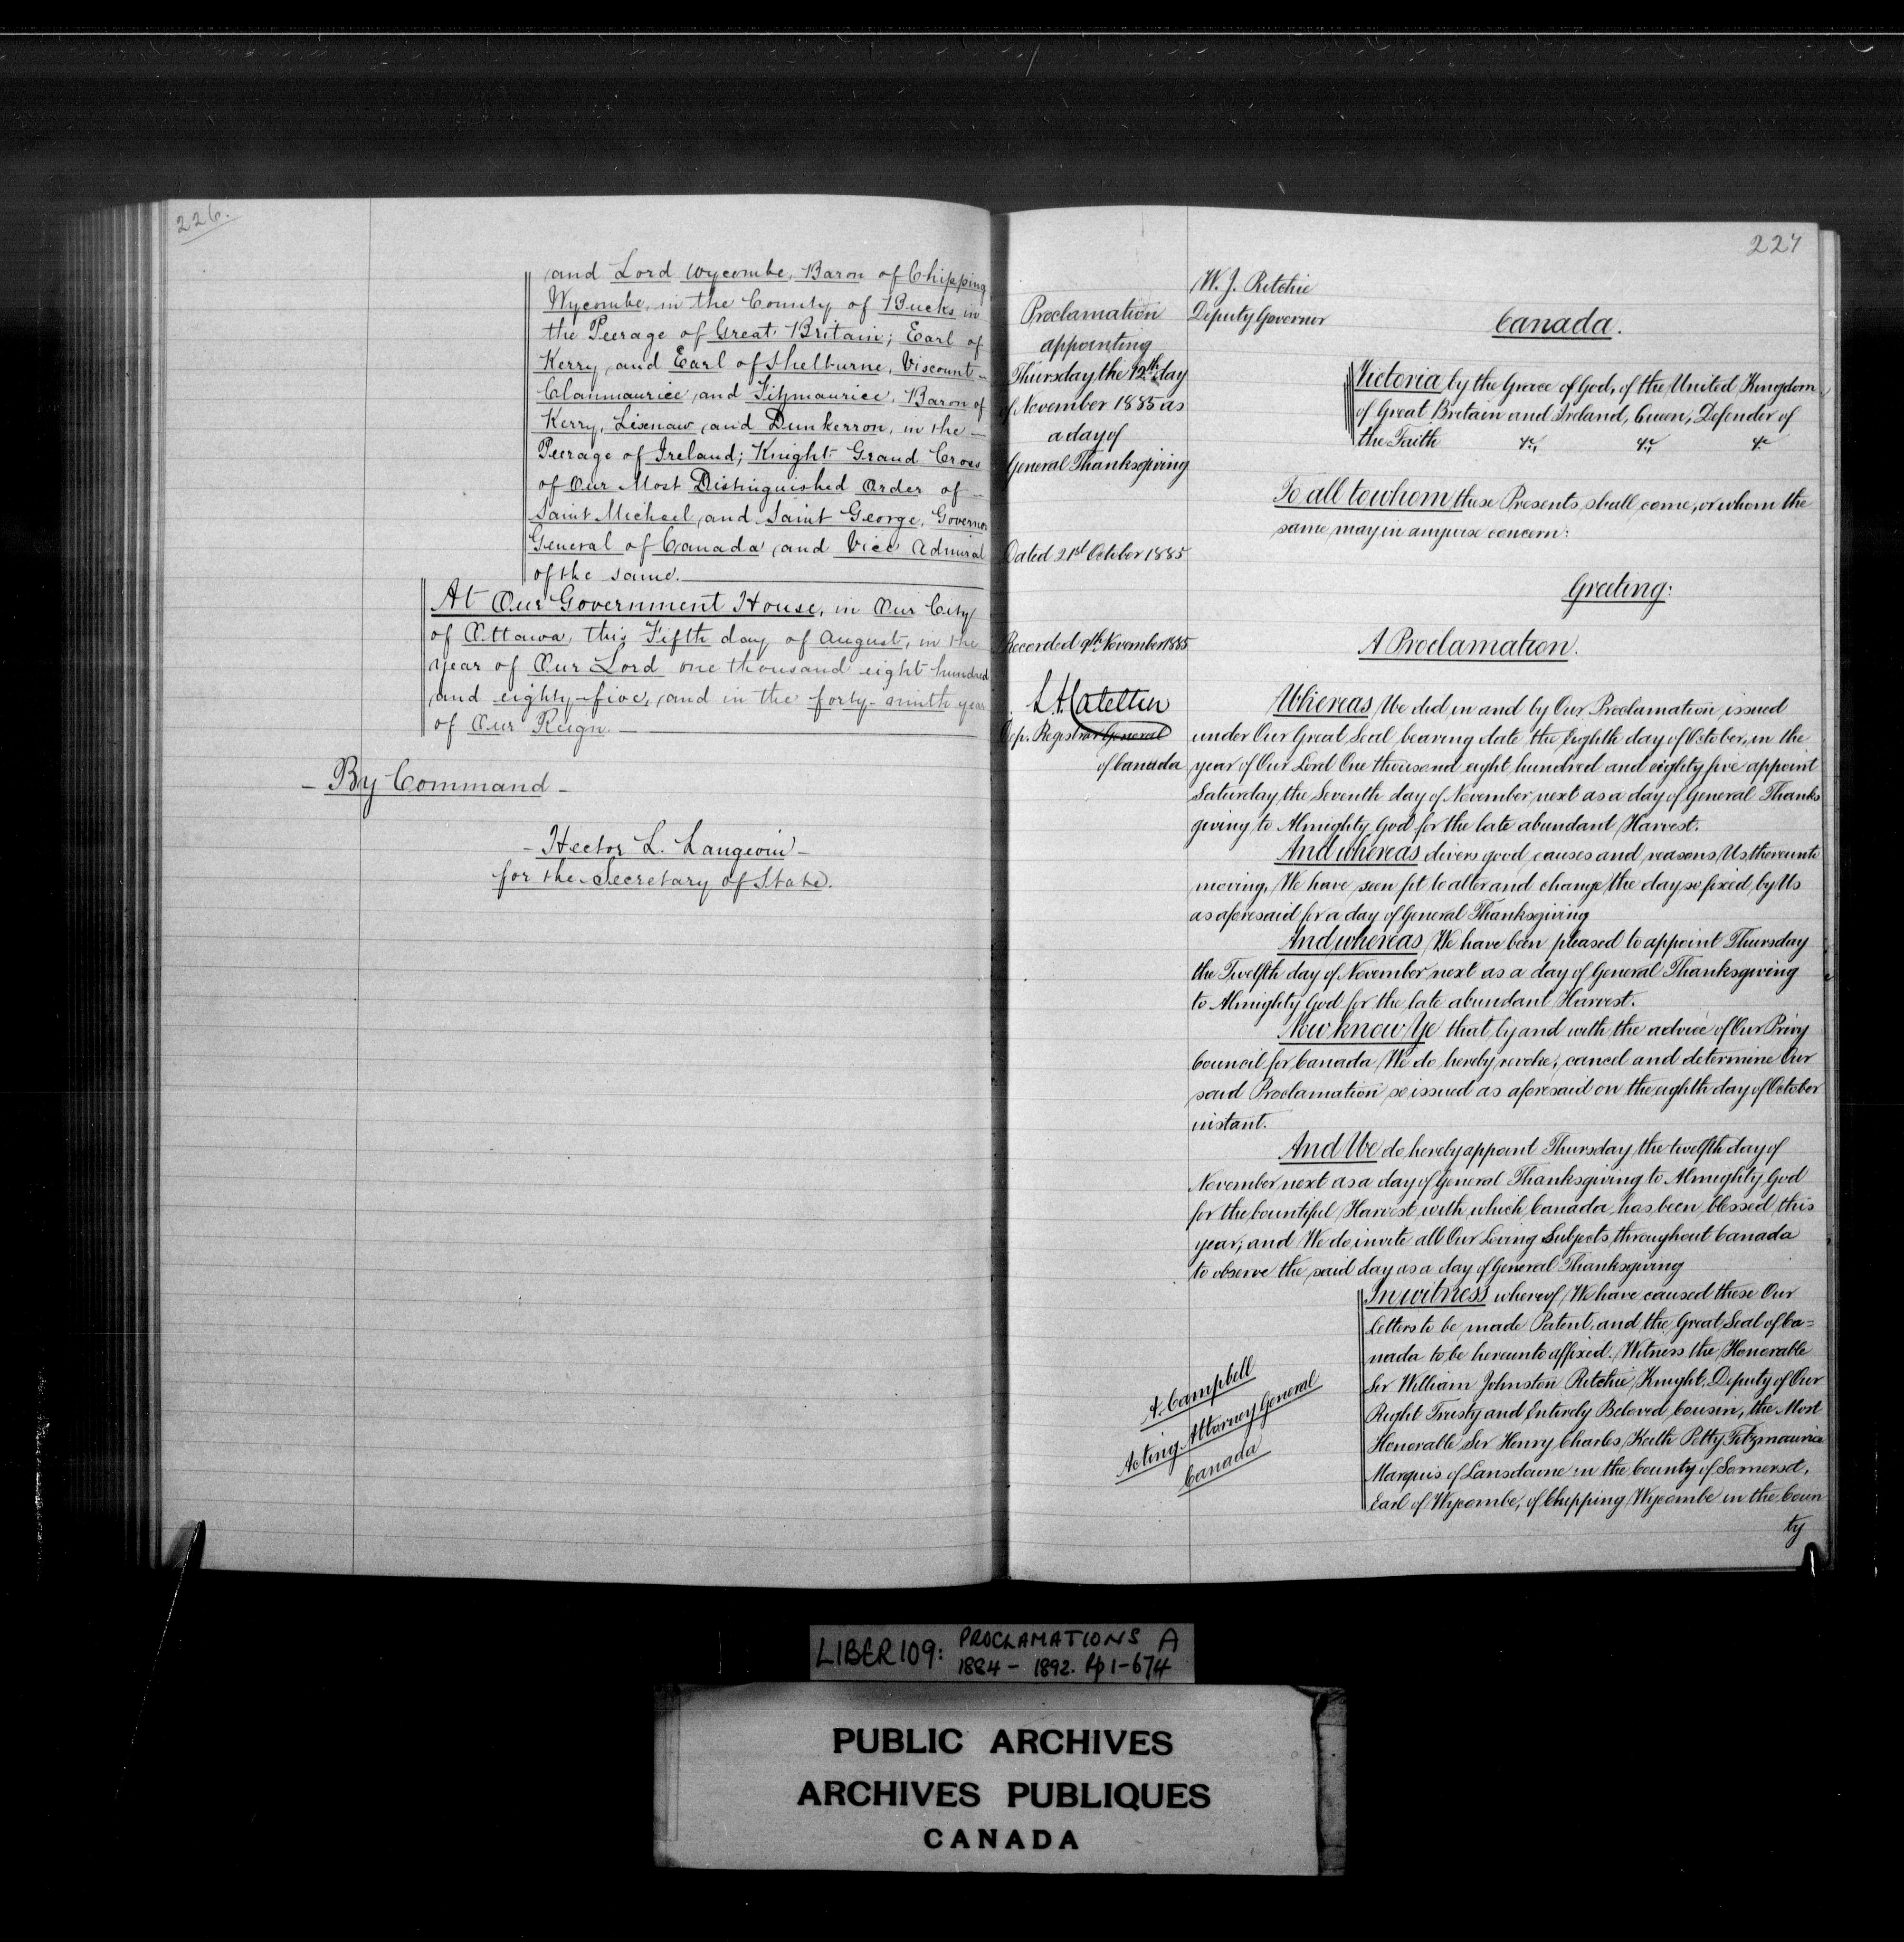 226.
and Lord Wycombe, Baron of Chipping
Wycombe, in the County of Bucks in
the Peerage of Great Britain; Earl of
Kerry, and Earl of Shelburne, Viscount –
Clanmaurice, and Fitzmaurice, Baron of
Kerry, Lixnaw, and Dunkerron, in the –
Peerage of Ireland; Knight Grand Cross
of Our Most Distinguished Order of –
Saint Michael, and Saint George, Governor
General of Canada, and Vice Admiral
of the same.
At Our Government House, in Our City
of Ottawa, this Fifth day of August, in the
year of Our Lord one thousand eight hundred
and eighty-five, and in the forty-ninth year
of Our Reign. –
– By Command –
– Hector L. Langevin –
for the Secretary of State.
227
W. J. Ritchie
Deputy Governor
Proclamation
appointing
Thursday, the 12th day
of November 1885 as
a day of
General Thanksgiving
Dated 21st October 1885
Recorded 9th November 1885
L A Catellier
Dep. Registrar General
of Canada
Canada.
Victoria by the Grace of God, of the United Kingdom
of Great Britain and Ireland, Queen, Defender of
the Faith &c, &c &c
To all to whom these Presents shall come, or whom the
same may in anywise concern:
Greeting:
A Proclamation.
Whereas We did in and by Our Proclamation issued
under Our Great Seal bearing date the Eighth day of October, in the
year of Our Lord One thousand eight hundred and eighty five appoint
Saturday, the Seventh day of November next as a day of General Thanks
giving to Almighty God for the late abundant Harvest.
And whereas divers good causes and reasons Us thereunto
moving, We have seen fit to alter and change the day so fixed by Us
as aforesaid for a day of General Thanksgiving
And whereas We have been pleased to appoint Thursday
the Twelfth day of November next as a day of General Thanksgiving
to Almighty God for the late abundant Harvest.
Now know Ye that by and with the advice of Our Privy
Council for Canada We do hereby revoke, cancel and determine Our
said Proclamation so issued as aforesaid on the eighth day of October
instant.
And We do hereby appoint Thursday the twelfth day of
November next as a day of General Thanksgiving to Almighty God
for the bountiful Harvest with which Canada has been blessed this
year; and We do invite all Our Loving Subjects throughout Canada
to observe the said day as a day of General Thanksgiving
In witness whereof We have caused these Our
Letters to be made Patent and the Great Seal of Ca=
nada to be hereunto affixed. Witness the Honorable
Sir William Johnston Ritchie Knight, Deputy of Our
Right Trusty and Entirely Beloved Cousin, the Most
Honorable Sir Henry Charles Keith Petty Fitzmaurice
Marquis of Lansdowne in the County of Somerset,
Earl of Wycombe, of Chepping Wycombe in the Coun
ty
A. Campbell
Acting Attorney General
Canada
LIBER 109: PROCLAMATIONS A
1884 – 1892. Pp 1–674
PUBLIC ARCHIVES
ARCHIVES PUBLIQUES
CANADA